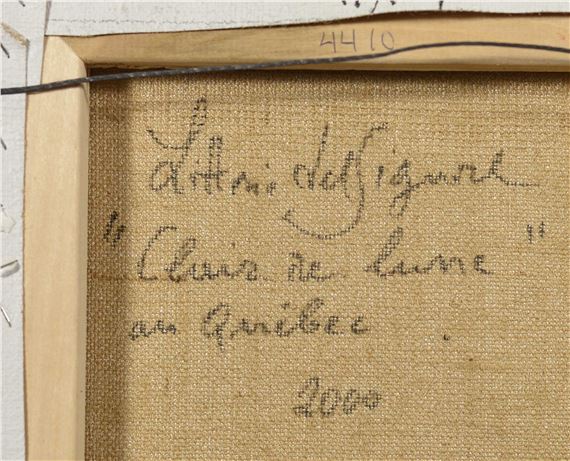 4410
Littorio del Signore
"Clair de Lune"
au Québec
2000